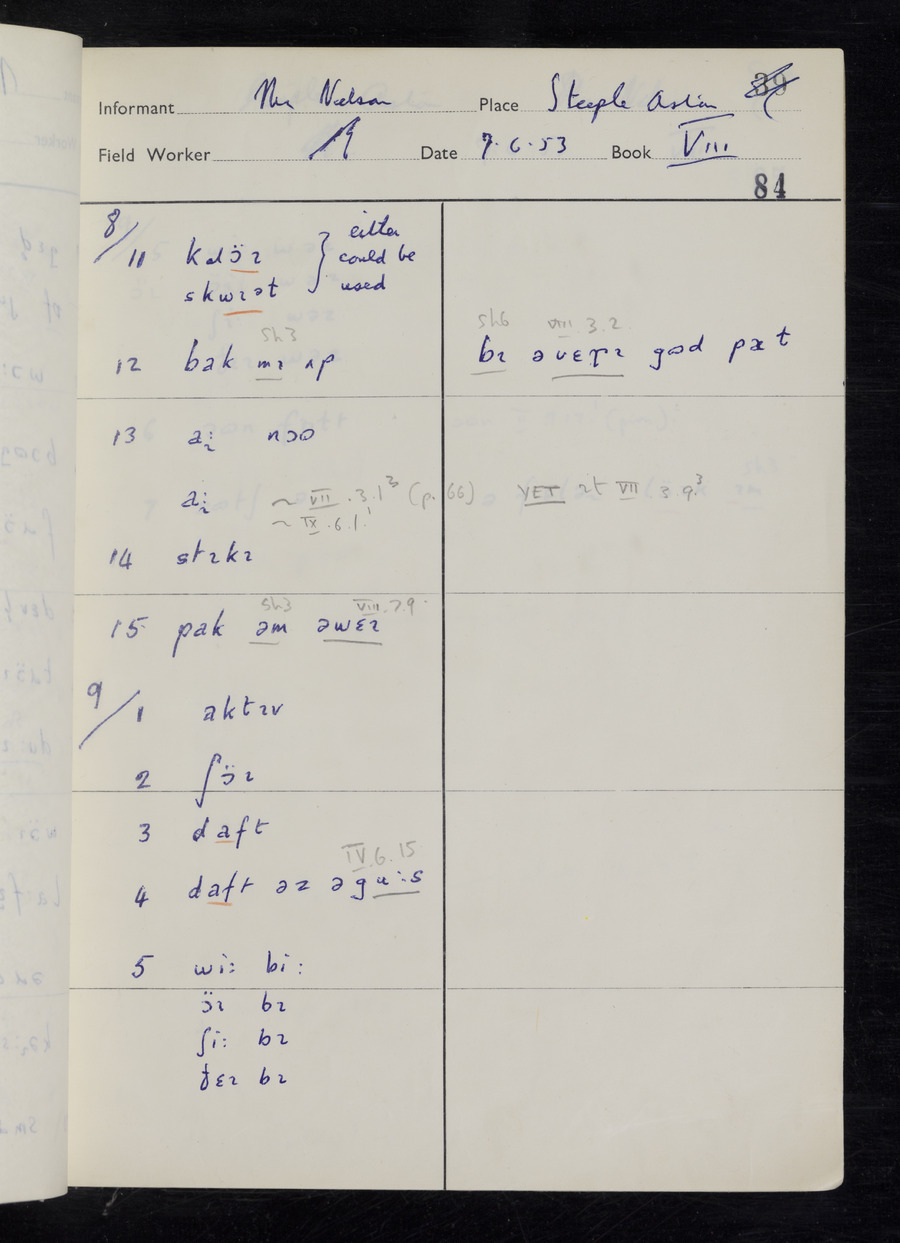 39
Informant Mr Nelson Place Steeple Aston
Field Worker Date 7.6.53 Book VIII
84
8/11 kɹɔ̈ɪ } either
could be
skwɪət used
sh3 sh6 VIII.3.2
12 bak mɪ ʌp bɪ əvɛɾɪ god pæt
13 nɔʊ
~ VII.3.1³ (p.66) YET at VII 3.9.³
~ IX.6.1.¹
14 stɪkɪ
sh3 VIII.7.9
15 pak əm əwɛɪ
9/1 aktɪv
2 ʃɔ̈ɪ
3 daft
IV.6.15
4 daft əz əguːs
5 wiː biː
ɔ̈ɪ bɪ
ʃiː bɪ
ðɛɪ bɪ